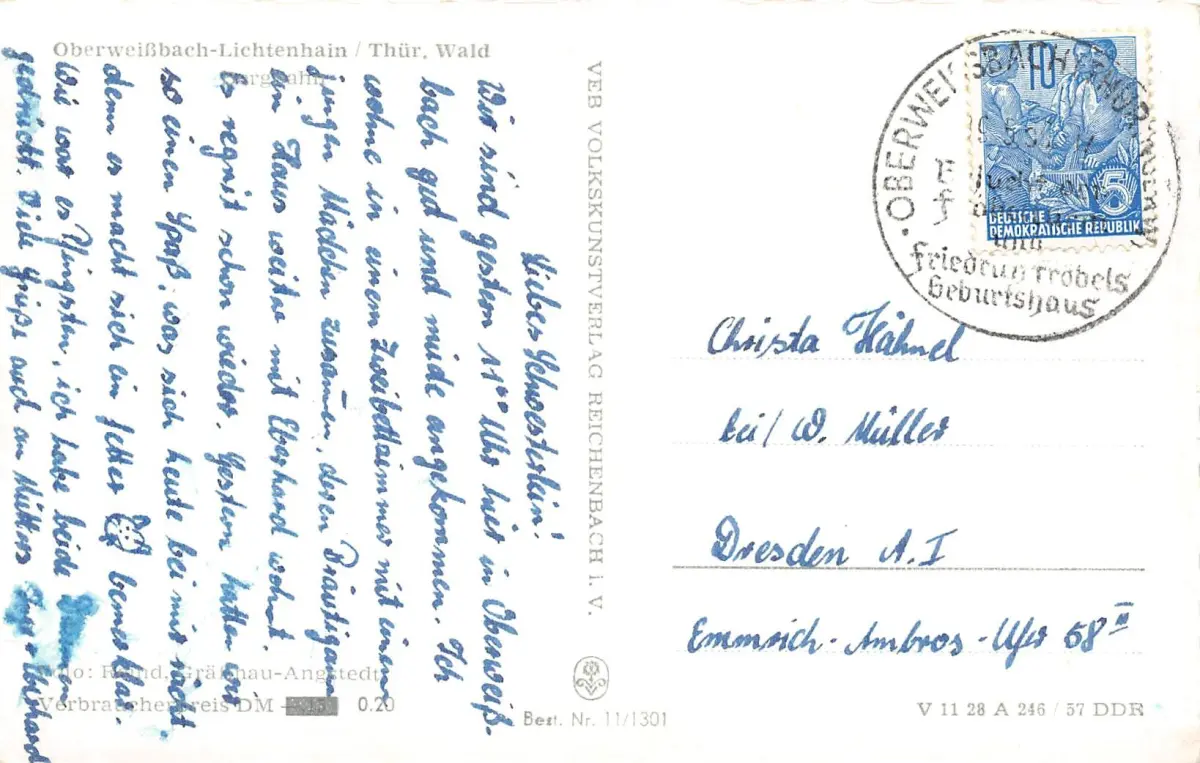 Oberweißbach-Lichtenhain / Thür. Wald
Bergbahn
Liebes Schwesterlein!
Wir sind gestern 11⁰⁰ Uhr hier in Oberweiß-
bach gut und müde angekommen. Ich
wohne in einem Zweibettzimmer mit einem
jungen Mädchen zusamen, deren
ein Haus weiter mit Eberhard wohnt
es regnit schon wieder. Gestern hatten wir
so einen Spaß, was sich heute bei mir rächt
denn es macht sich ein fetter bemerkbar.
Wie war es Pfingsten, ich habe beide
gedrückt. Viele Grüße auch an Mutter
Eberhard
VEB VOLKSKUNSTVERLAG REICHENBACH i. V.
Verbraucherpreis DM 0.20
Best. Nr. 11/1301
V 11 28 A 246 / 57 DDR
OBERWEISSBACH
und
Friedrich Fröbels
Geburtshaus
10
5
DEUTSCHE
DEMOKRATISCHE REPUBLIK
Christa Hähnel
bei / W. Müller
Dresden A. I
Emmrich-Ambros-Ufer 58 III